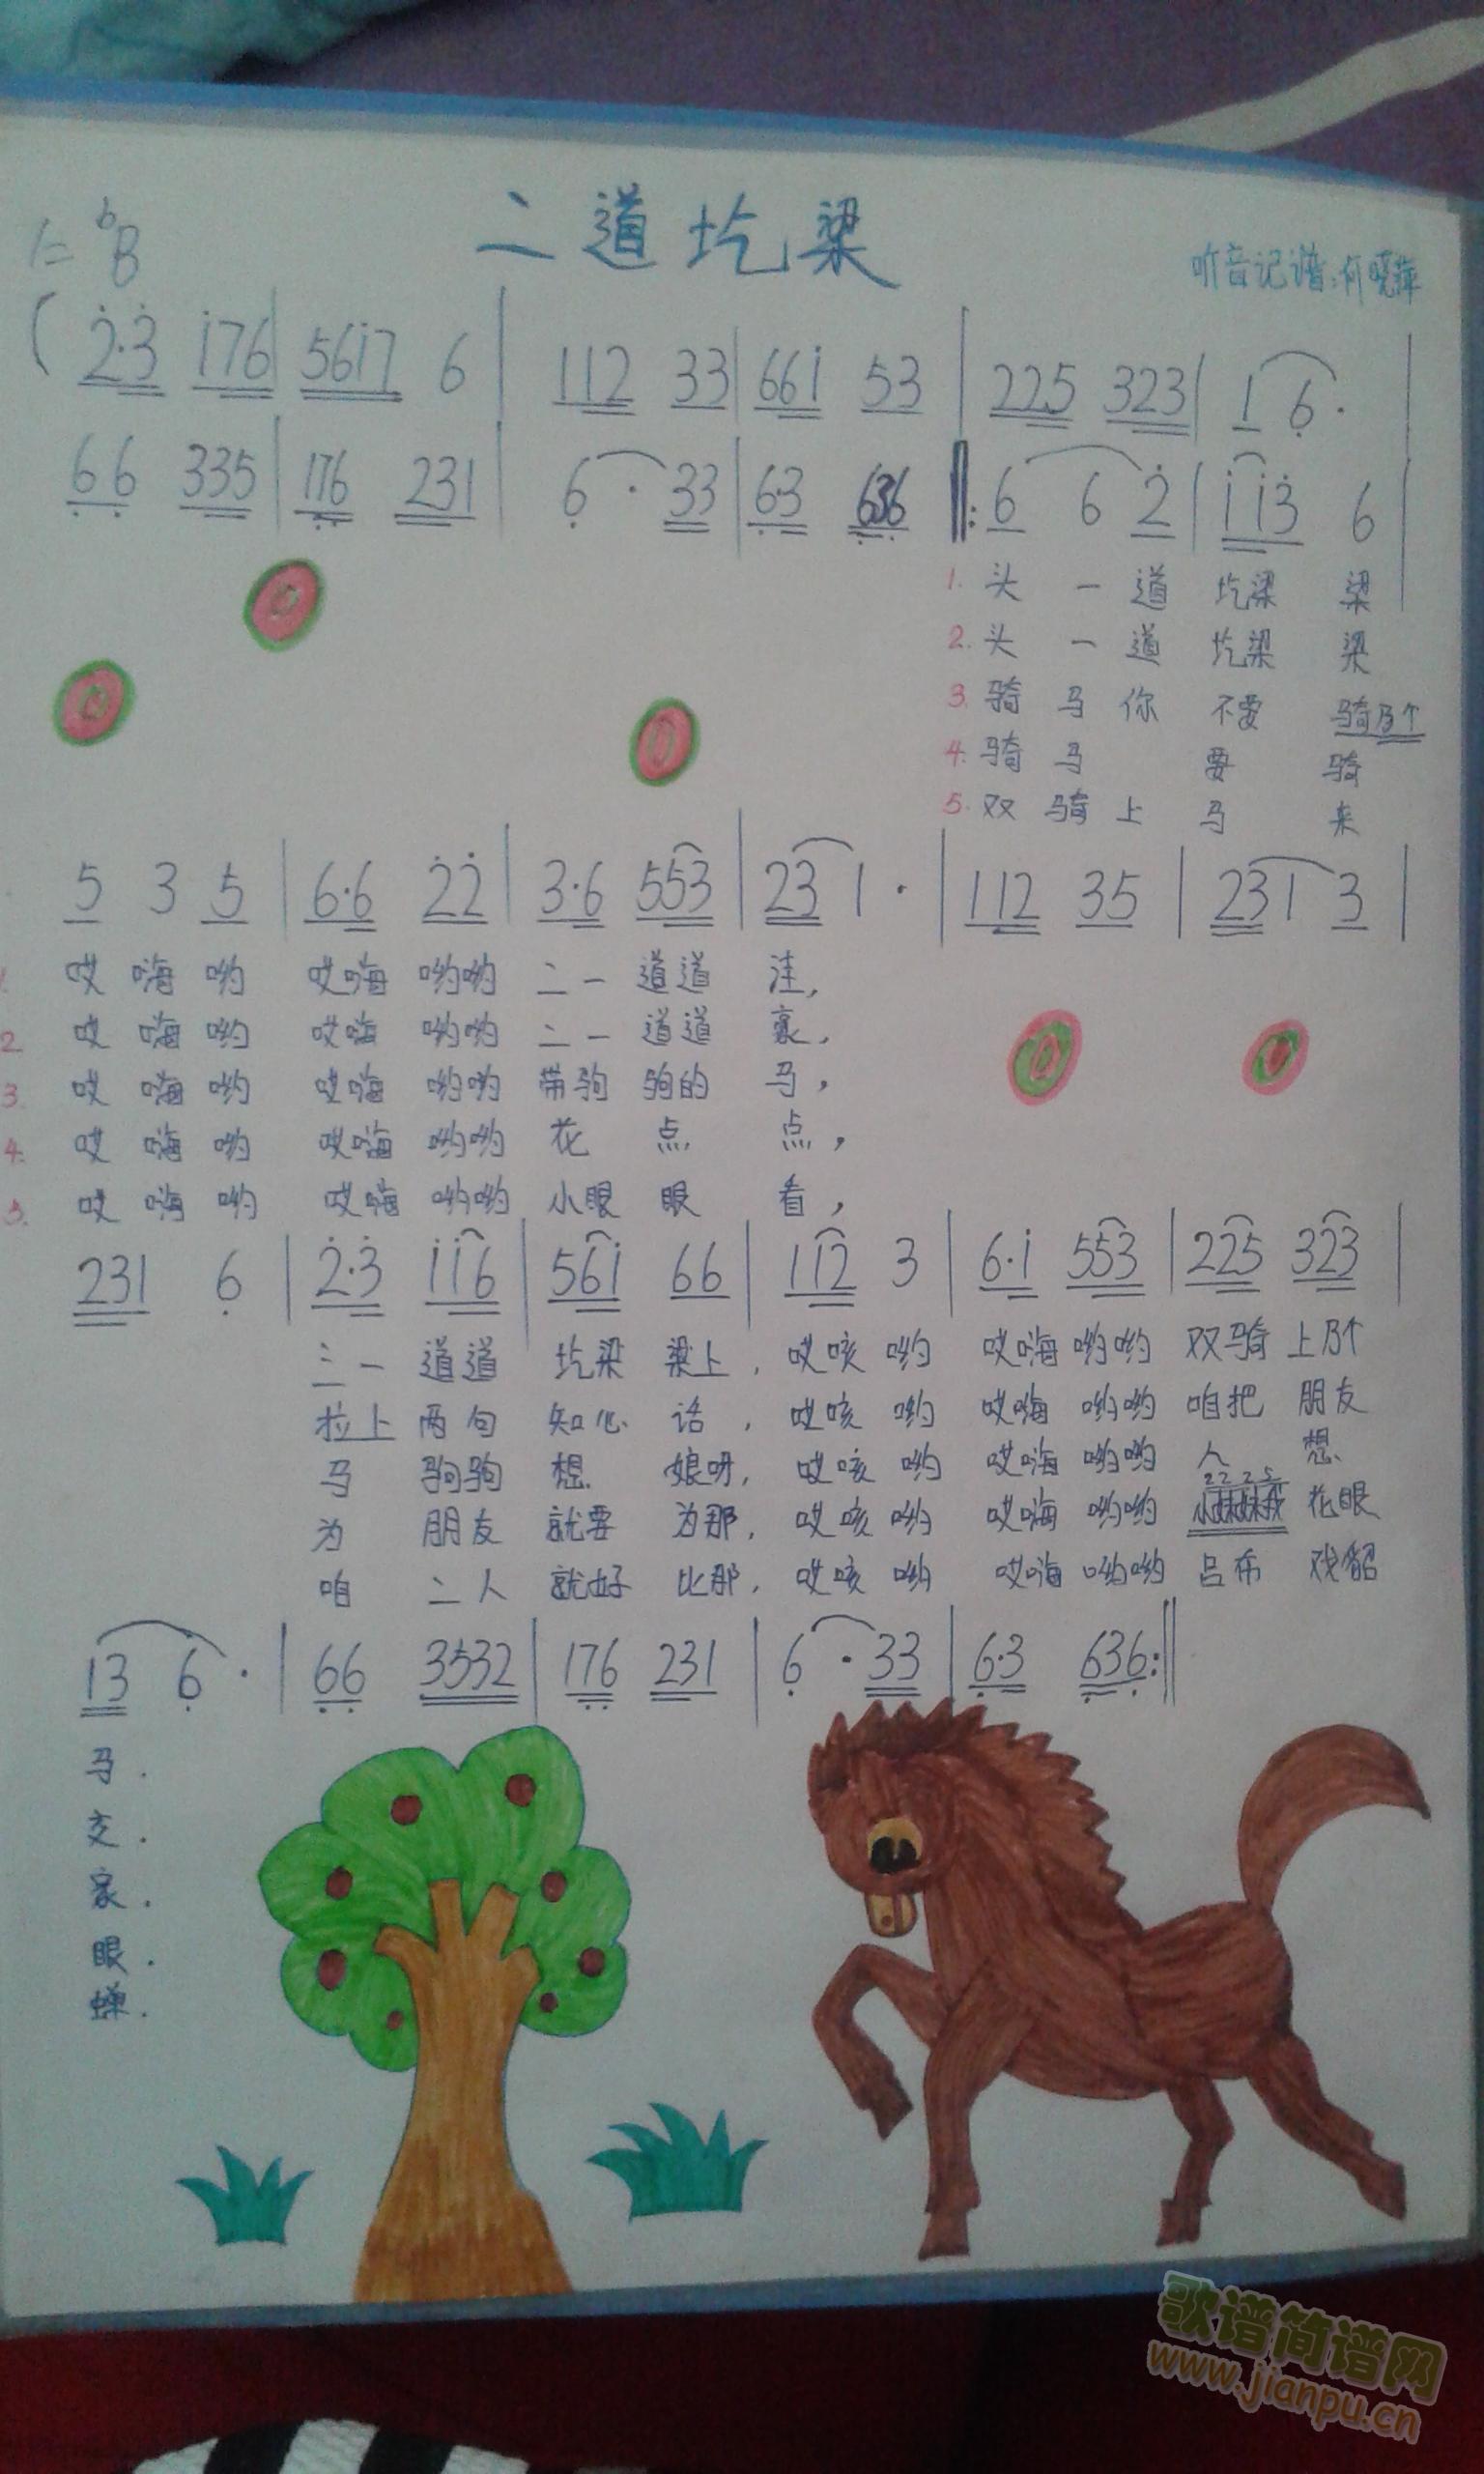 二道圪梁
1=bB
听音记谱:何晓萍
( 2·3 176 | 5617 6 | 112 33 | 661 53 | 225 323 | 1 6· |
66 335 | 176 231 | 6·33 | 6·3 636 ‖: 6 6 2 | 113 6 |
1. 头 一 道 圪梁 梁
2. 头 一 道 圪梁 梁
3. 骑 马 你 不要 骑乃个
4. 骑 马 要 骑
5. 双 骑 上 马 来
5 3 5 | 6·6 22 | 3·6 553 | 23 1· | 112 35 | 231 3 |
1. 哎 嗨 哟 哎嗨 哟哟 二一 道道 洼,
2. 哎 嗨 哟 哎嗨 哟哟 二一 道道
3. 哎 嗨 哟 哎嗨 哟哟 带驹 驹的 马,
4. 哎 嗨 哟 哎嗨 哟哟 花 点 点,
5. 哎 嗨 哟 哎嗨 哟哟 小眼 眼 看,
231 6 | 2·3 116 | 561 66 | 112 3 | 6·1 553 | 225 323 |
三一 道道 圪梁 梁上, 哎咳 哟 哎嗨 哟哟 双骑 上乃个
拉上 两句 知心 话, 哎咳 哟 哎嗨 哟哟 咱把 朋友
马 驹驹 想 娘呀, 哎咳 哟 哎嗨 哟哟 人 想
为 朋友 就要 为那, 哎咳 哟 哎嗨 哟哟 2225 小妹妹我 花眼
咱 二人 就好 比那, 哎咳 哟 哎嗨 哟哟 吕布 戏貂
13 6· | 66 3532 | 176 231 | 6·33 | 6·3 636 :‖
马.
交.
家.
眼.
蝉.
歌谱简谱网
www.jianpu.cn